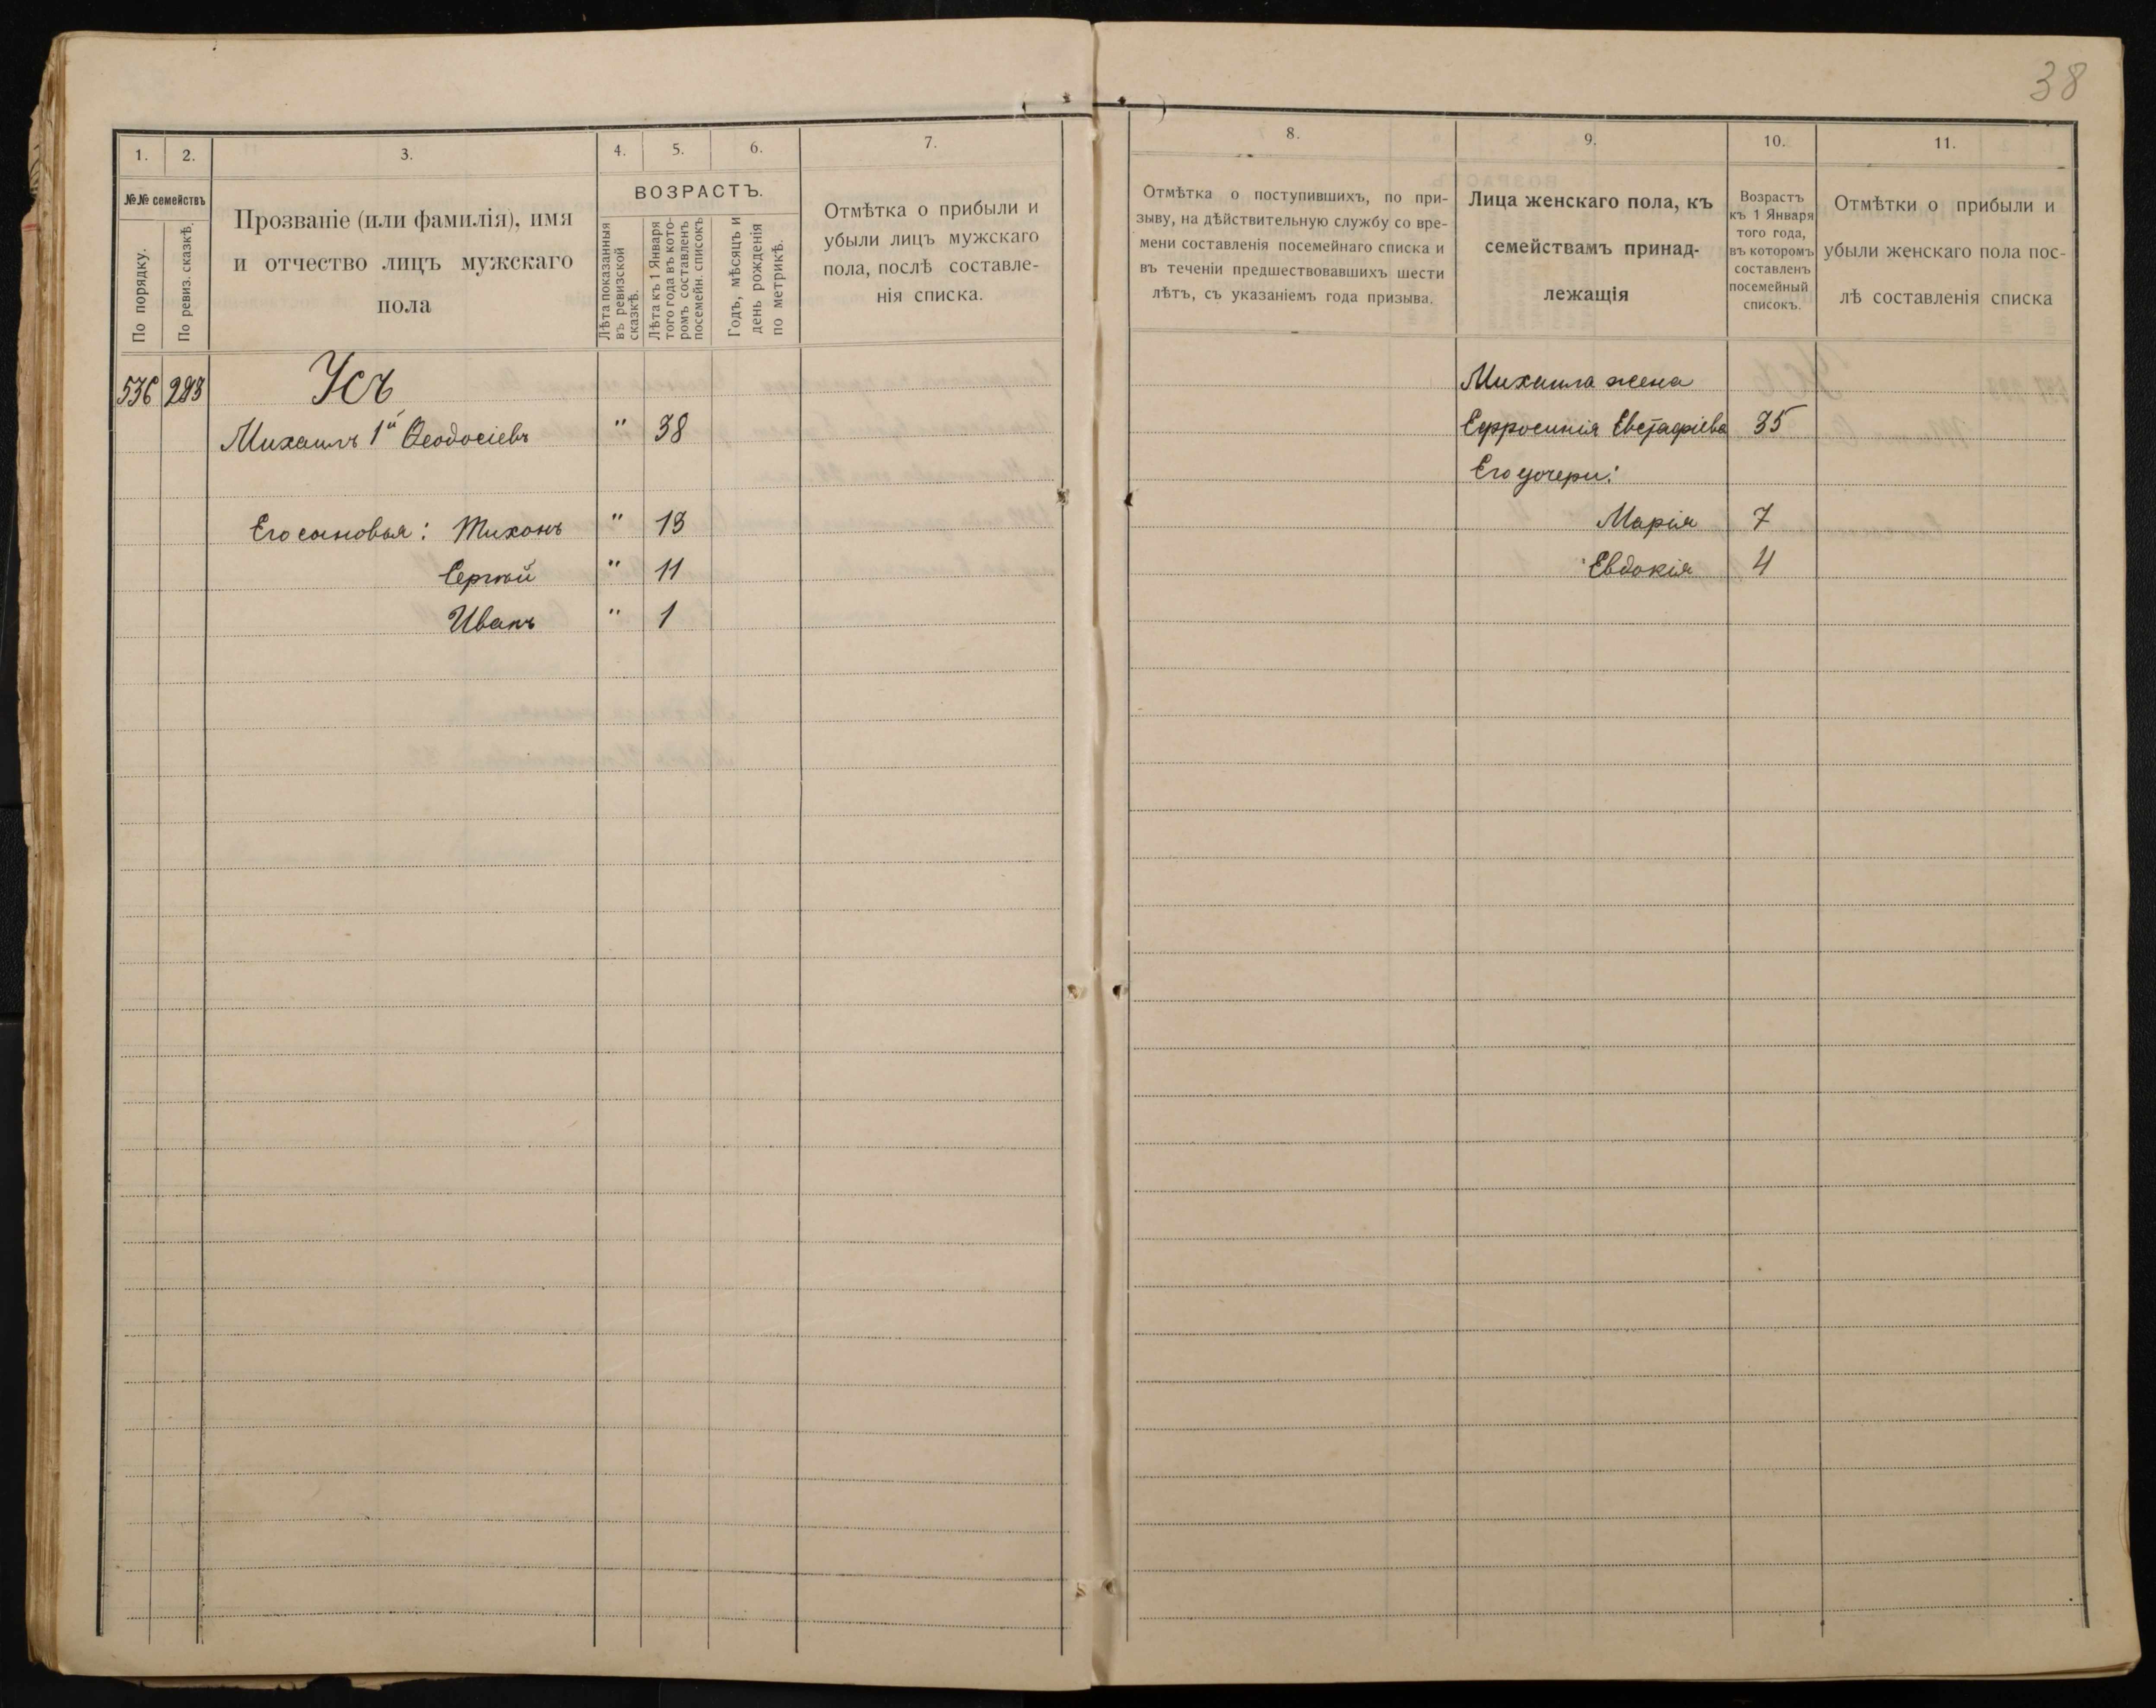 38
1. 2. 3. 4. 5. 6. 7.
№№ семействъ
По порядку.
По ревиз. сказкѣ.
Прозваніе (или фамилія), имя
и отчество лицъ мужскаго
пола
ВОЗРАСТЪ.
Лѣта показанныя
въ ревизской
сказкѣ.
Лѣта къ 1 Января
того года въ кото-
ромъ составленъ
посемейн. списокъ
Годъ, мѣсяцъ и
день рожденія
по метрикѣ.
Отмѣтка о прибыли и
убыли лицъ мужскаго
пола, послѣ составле-
нія списка.
536 283 Усъ
Михаилъ 1й Ѳеодосіевъ " 38
Его сыновья: Тихонъ " 13
Сергѣй " 11
Иванъ " 1
8. 9. 10. 11.
Отмѣтка о поступившихъ, по при-
зыву, на дѣйствительную службу со вре-
мени составленія посемейнаго списка и
въ теченіи предшествовавшихъ шести
лѣтъ, съ указаніемъ года призыва.
Лица женскаго пола, къ
семействамъ принад-
лежащія
Возрастъ
къ 1 Января
того года,
въ которомъ
составленъ
посемейный
списокъ.
Отмѣтки о прибыли и
убыли женскаго пола пос-
лѣ составленія списка
Михаила жена
Ефросинія Евстафіева 35
Его дочери:
Марія 7
Евдокія 4